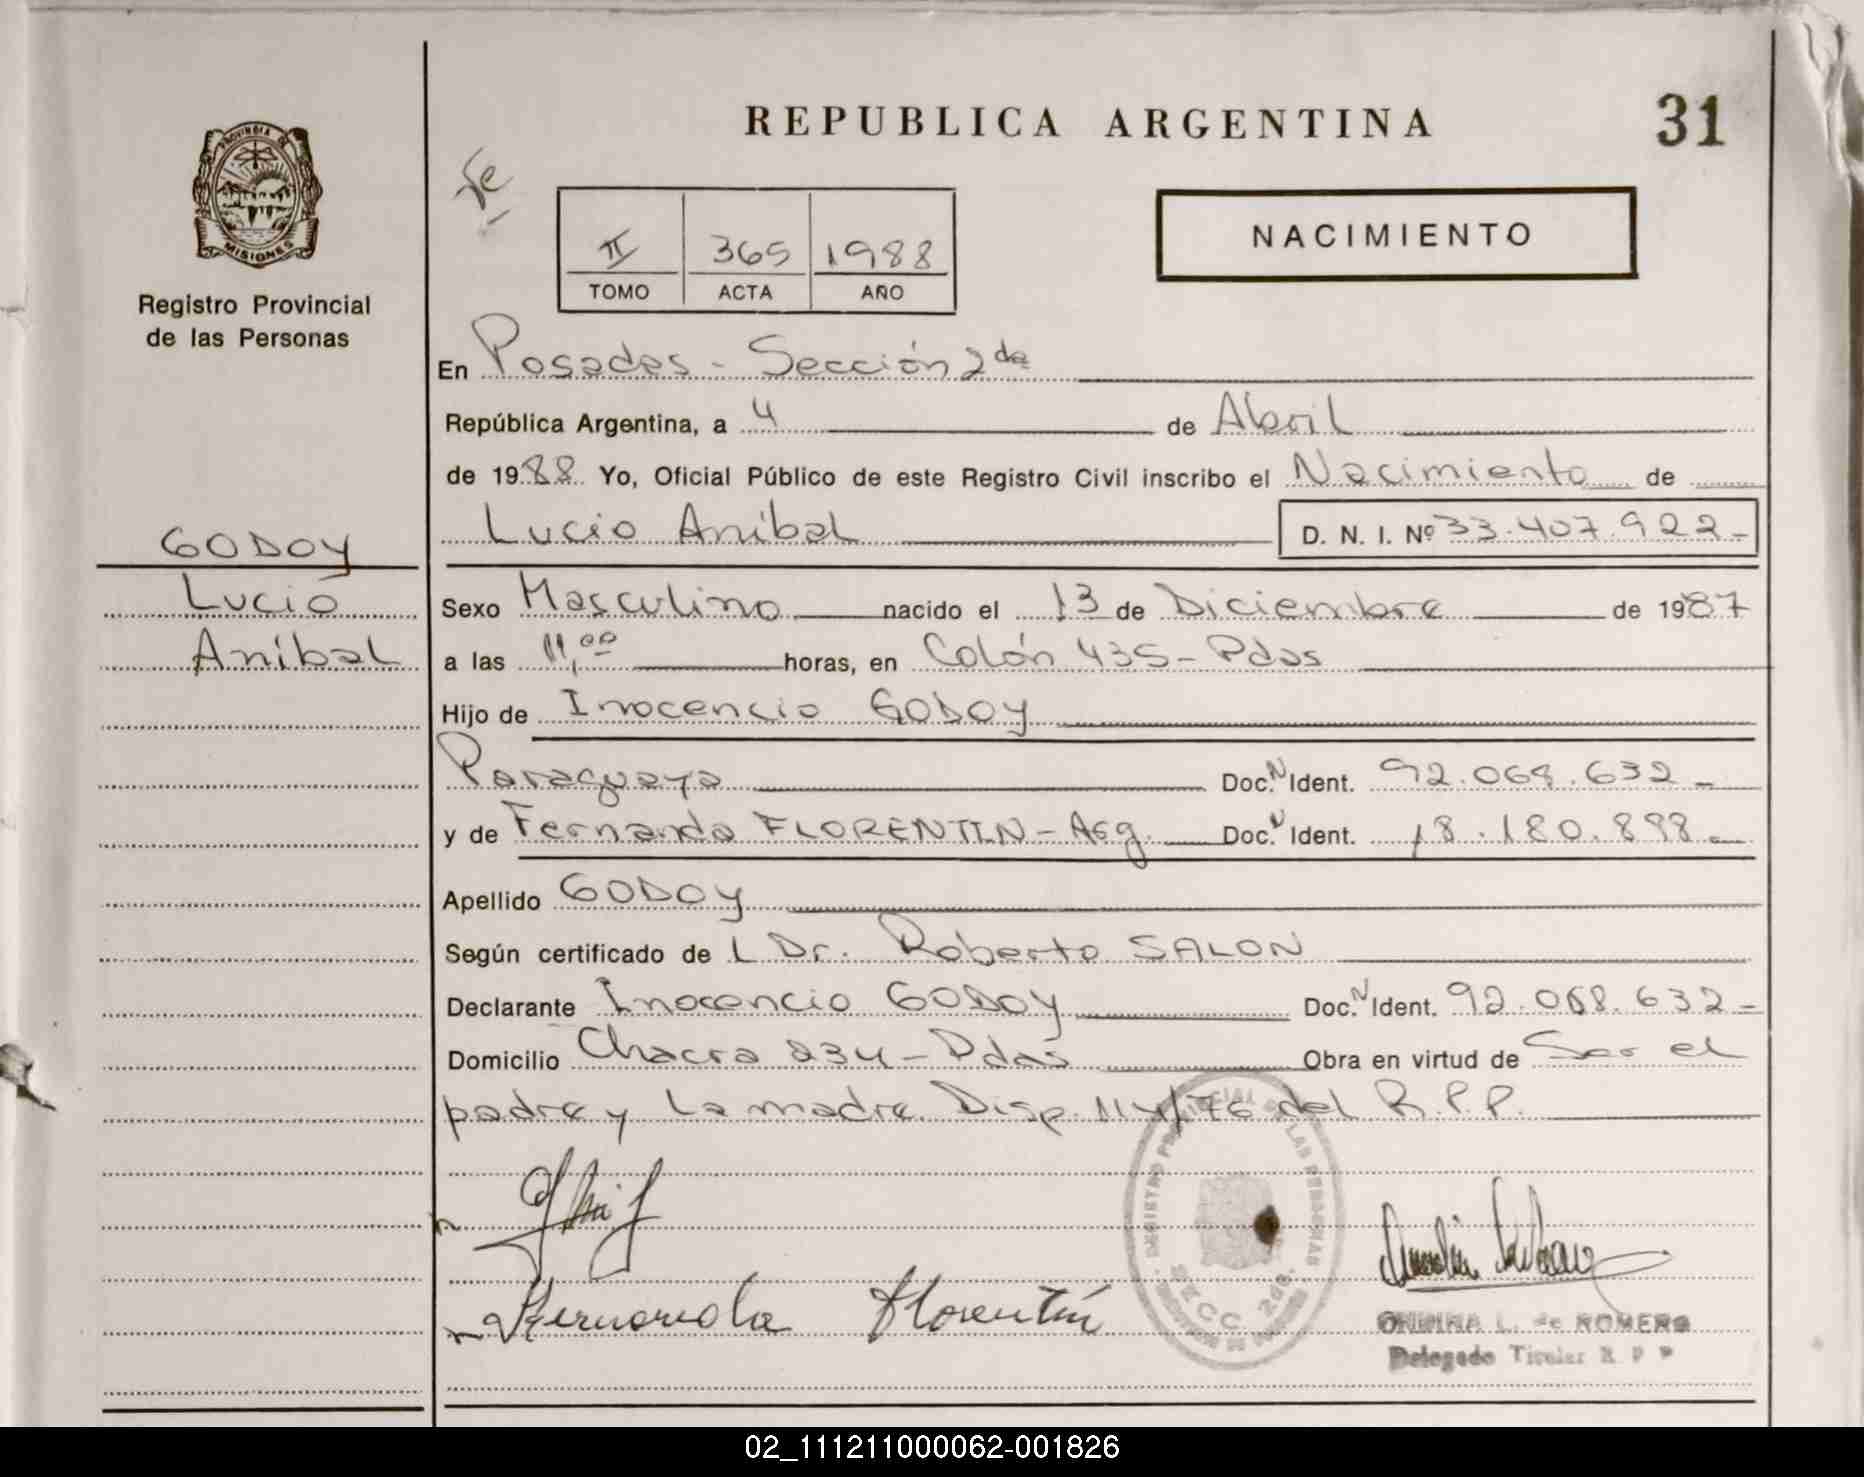 REPUBLICA ARGENTINA
31
PROVINCIA DE
MISIONES
Registro Provincial
de las Personas
II 365 1988
TOMO ACTA AÑO
NACIMIENTO
En Posadas - Sección 2da
República Argentina, a 4 de Abril
de 1988 Yo, Oficial Público de este Registro Civil inscribo el Nacimiento de
Lucio Aníbal D. N. I. Nº 33.407.922-
GODOY
Lucio
Aníbal
Sexo Masculino nacido el 13 de Diciembre de 1987
a las 11,00 horas, en Colón 435 - Pdas
Hijo de Inocencio GODOY
Paraguaya Doc. N Ident. 92.068.632-
y de Fernanda FLORENTIN - Arg. Doc. N Ident. 18.180.898-
Apellido GODOY
Según certificado de L Dr. Roberto SALON
Declarante Inocencio GODOY Doc. N Ident. 92.068.632-
Domicilio Chacra 234 - Pdas Obra en virtud de Ser el
padre y La madre. Disp. 114/76 del R.P.P.
REGISTRO PROVINCIAL DE LAS PERSONAS
SECC. 2da.
Fernanda Florentín
L. de ROMERO
Delegado Titular R P P
02_111211000062-001826